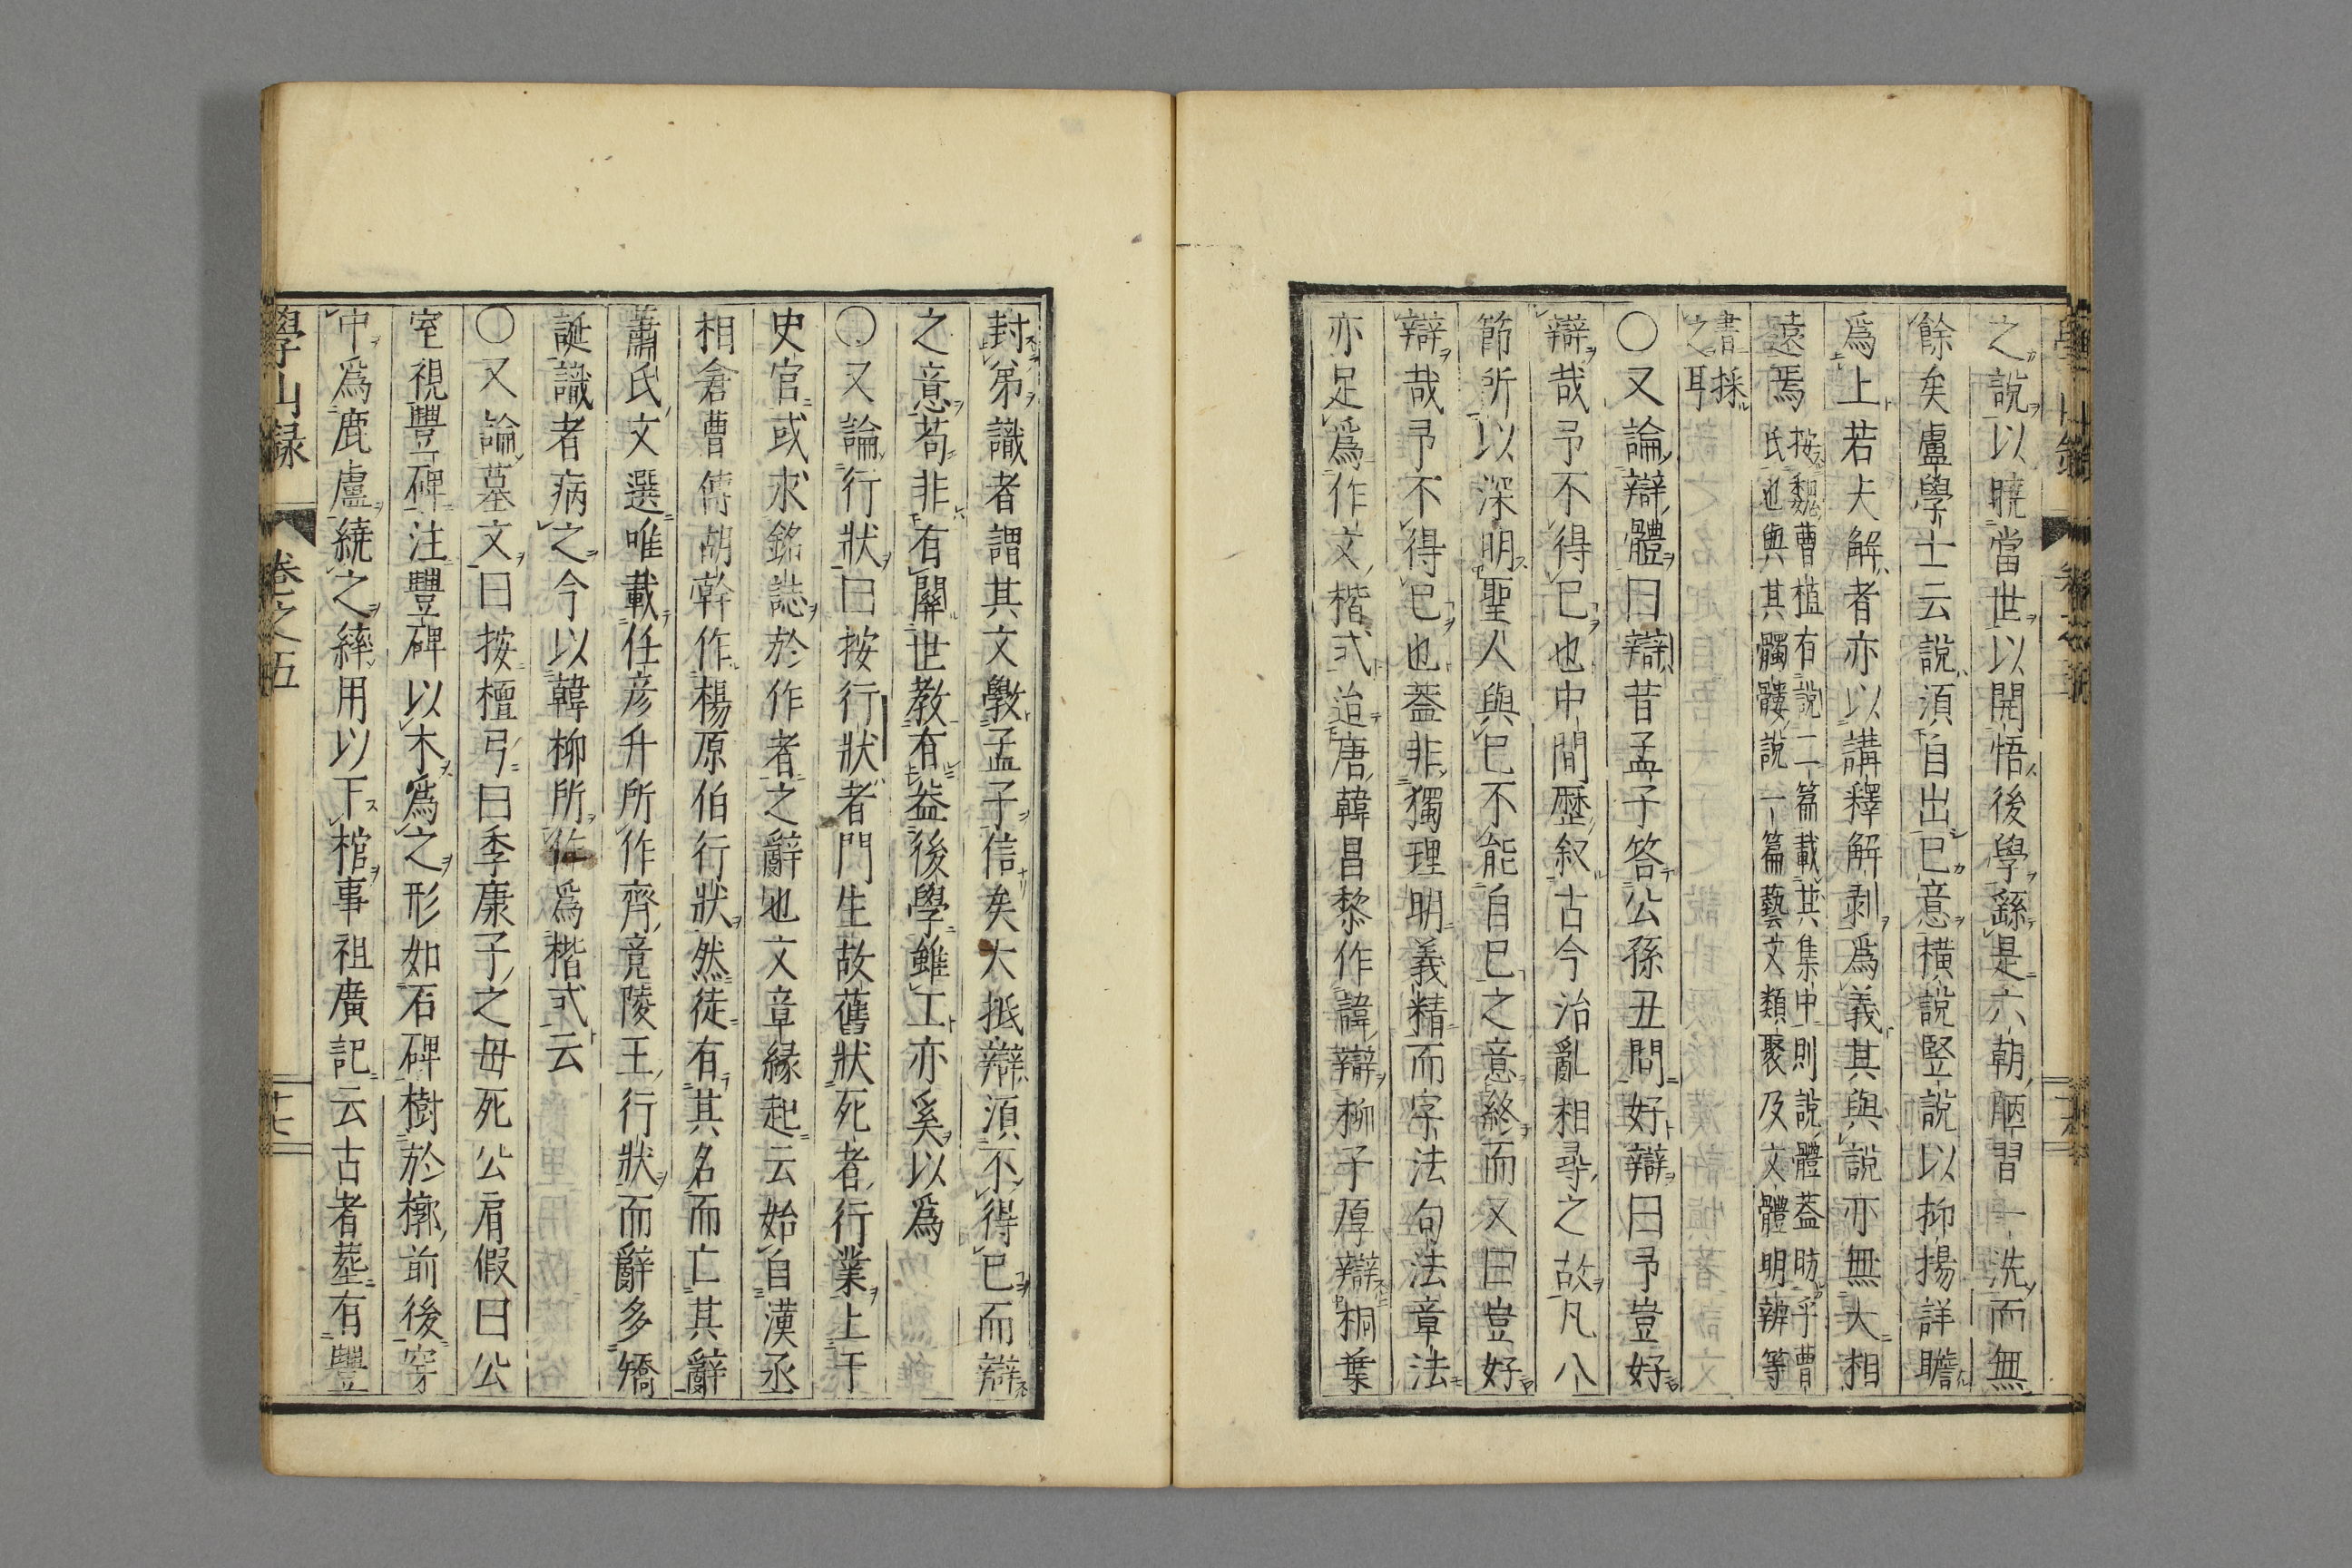 之說以曉當世以開悟後學繇是六朝陋習一洗而無
餘矣盧學士云說須自出已意橫說竪說以抑揚詳贍
爲上若夫解者亦以講釋解剥爲義其與說亦無大相
遠焉按魏曹植有說二篇載其集中則說體蓋昉乎曹
氏也與其髑髏說一篇藝文類聚及文體明辨等
書採
之耳
〇又論辯體曰辯昔孟子答公孫丑問好辯曰予豈好
辯哉予不得已也中間歷叙古今治亂相尋之故凡八
節所以深明聖人與已不能自已之意終而又曰豈好
辯哉予不得已也蓋非獨理明義精而字法句法章法
亦足爲作文楷式迨唐韓昌黎作諱辯柳子厚辯桐葉
封弟識者謂其文斆孟子信矣大抵辯須不得已而辯
之意苟非有關世教有益後學雖工亦奚以爲
〇又論行狀曰按行狀者門生故舊狀死者行業上于
史官或求銘誌於作者之辭也文章緣起云始自漢丞
相倉曹傅胡幹作楊原伯行狀然徒有其名而亡其辭
蕭氏文選唯載任彦升所作齊竟陵王行狀而辭多矯
誕識者病之今以韓柳所作爲楷式云
〇又論墓文曰按檀弓曰季康子之母死公肩假曰公
室視豐碑注豐碑以木爲之形如石碑樹於槨前後穿
中爲鹿盧繞之繂用以下棺事祖廣記云古者葬有豐
學山録 卷之五 十七